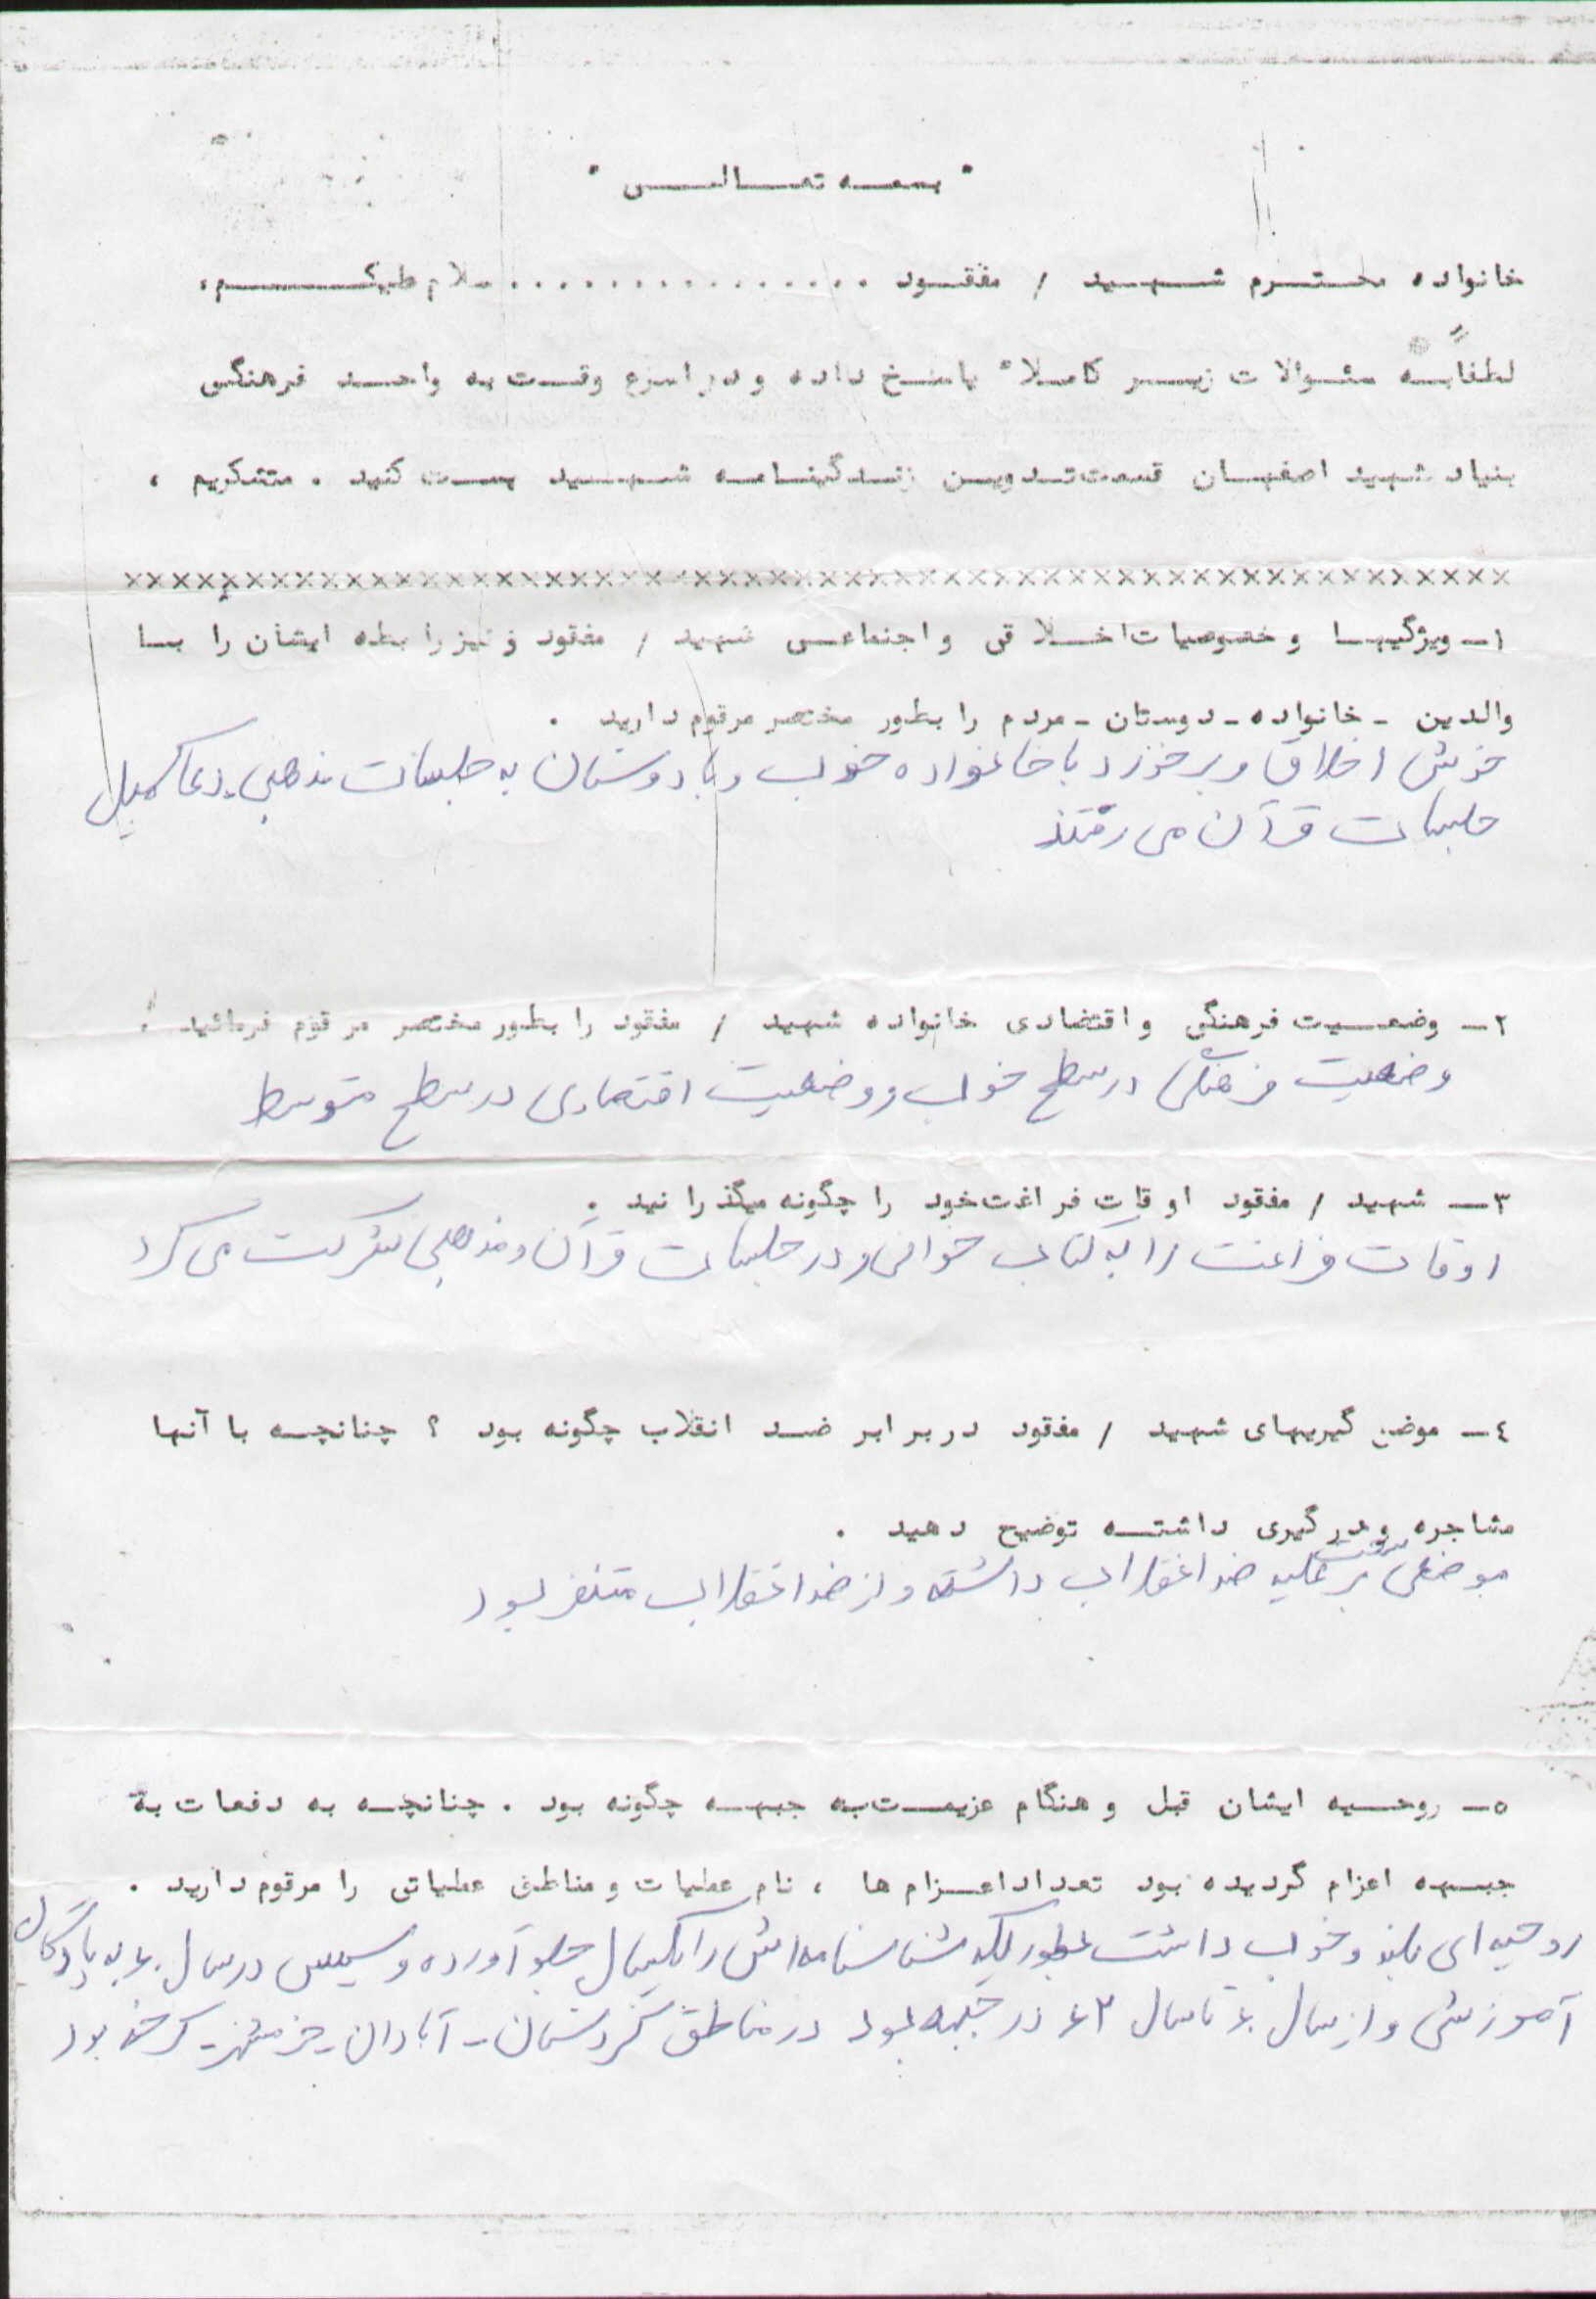 " بسمه تعالی "
خانواده محترم شهید / مفقود ................ سلام علیکم،
لطفاً به سئوالات زیر کاملا" پاسخ داده و در اسرع وقت به واحد فرهنگی
بنیاد شهید اصفهان قسمت تدوین زندگینامه شهید پست کنید . متشکریم .
××××××××××××××××××××××××××××××××××××××××××××××××××××××××
۱- ویژگیها و خصوصیات اخلاقی و اجتماعی شهید / مفقود و نیز رابطه ایشان را با
والدین - خانواده - دوستان - مردم را بطور مختصر مرقوم دارید .
خوش اخلاق و برخورد با خانواده خوب و با دوستان به جلسات مذهبی دعا کمیل
جلسات قرآن می رفتند
۲- وضعیت فرهنگی و اقتصادی خانواده شهید / مفقود را بطور مختصر مرقوم فرمائید .
وضعیت فرهنگی در سطح خوب و وضعیت اقتصادی در سطح متوسط
۳- شهید / مفقود اوقات فراغت خود را چگونه میگذرانید .
اوقات فراغت را به کتاب خوانی و در جلسات قرآن و مذهبی شرکت می کرد
٤- موضع گیریهای شهید / مفقود در برابر ضد انقلاب چگونه بود ؟ چنانچه با آنها
مشاجره و درگیری داشته توضیح دهید .
موضعی بر علیه ضد انقلاب داشته و از ضد انقلاب متنفر بود
۵- روحیه ایشان قبل و هنگام عزیمت به جبهه چگونه بود . چنانچه به دفعات به
جبهه اعزام گردیده بود تعداد اعزام ها ، نام عملیات و مناطق عملیاتی را مرقوم دارید .
روحیه ای بلند و خوب داشت بطوریکه شناسنامه اش را یکسال جلو آورده و سپس در سال ۶۰ به پادگان
آموزشی و از سال ۶۰ تا سال ۶۲ در جبهه بود در مناطق کردستان - آبادان - خرمشهر - کرخه بود